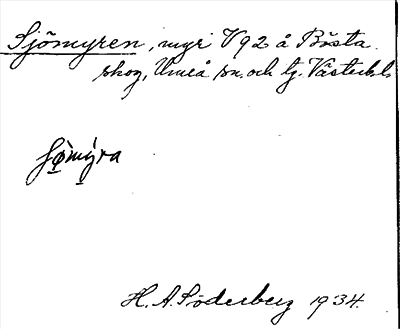 Sjömyren, myr V 92 å Bösta
skog, Umeå sn. och tg. Västerb.
H. A. Söderberg 1934.